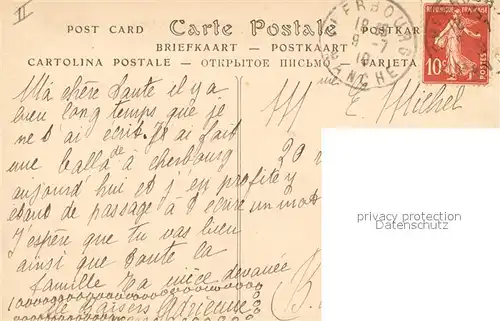 II
POST CARD Carte Postale POSTKARTE
BRIEFKAART — POSTKAART
CARTOLINA POSTALE — ОТКРЫТОЕ ПИСЬМО — TARJETA
CHERBOURG
MANCHE
REPUBLIQUE FRANÇAISE
10c
POSTES
Ma chère Tante il y a
bien long temps que je
ne t'ai écrit. J'ai fait
une balla de à cherbourg
aujourd hui et j'en profite y
etant de passage à t ecrire un mot
J'espère que tu vas bien
ainsi que toute la
famille Ta nièce devouée
Baisers Adrienne
Mme E. Michel
20
privacy protection
Datenschutz